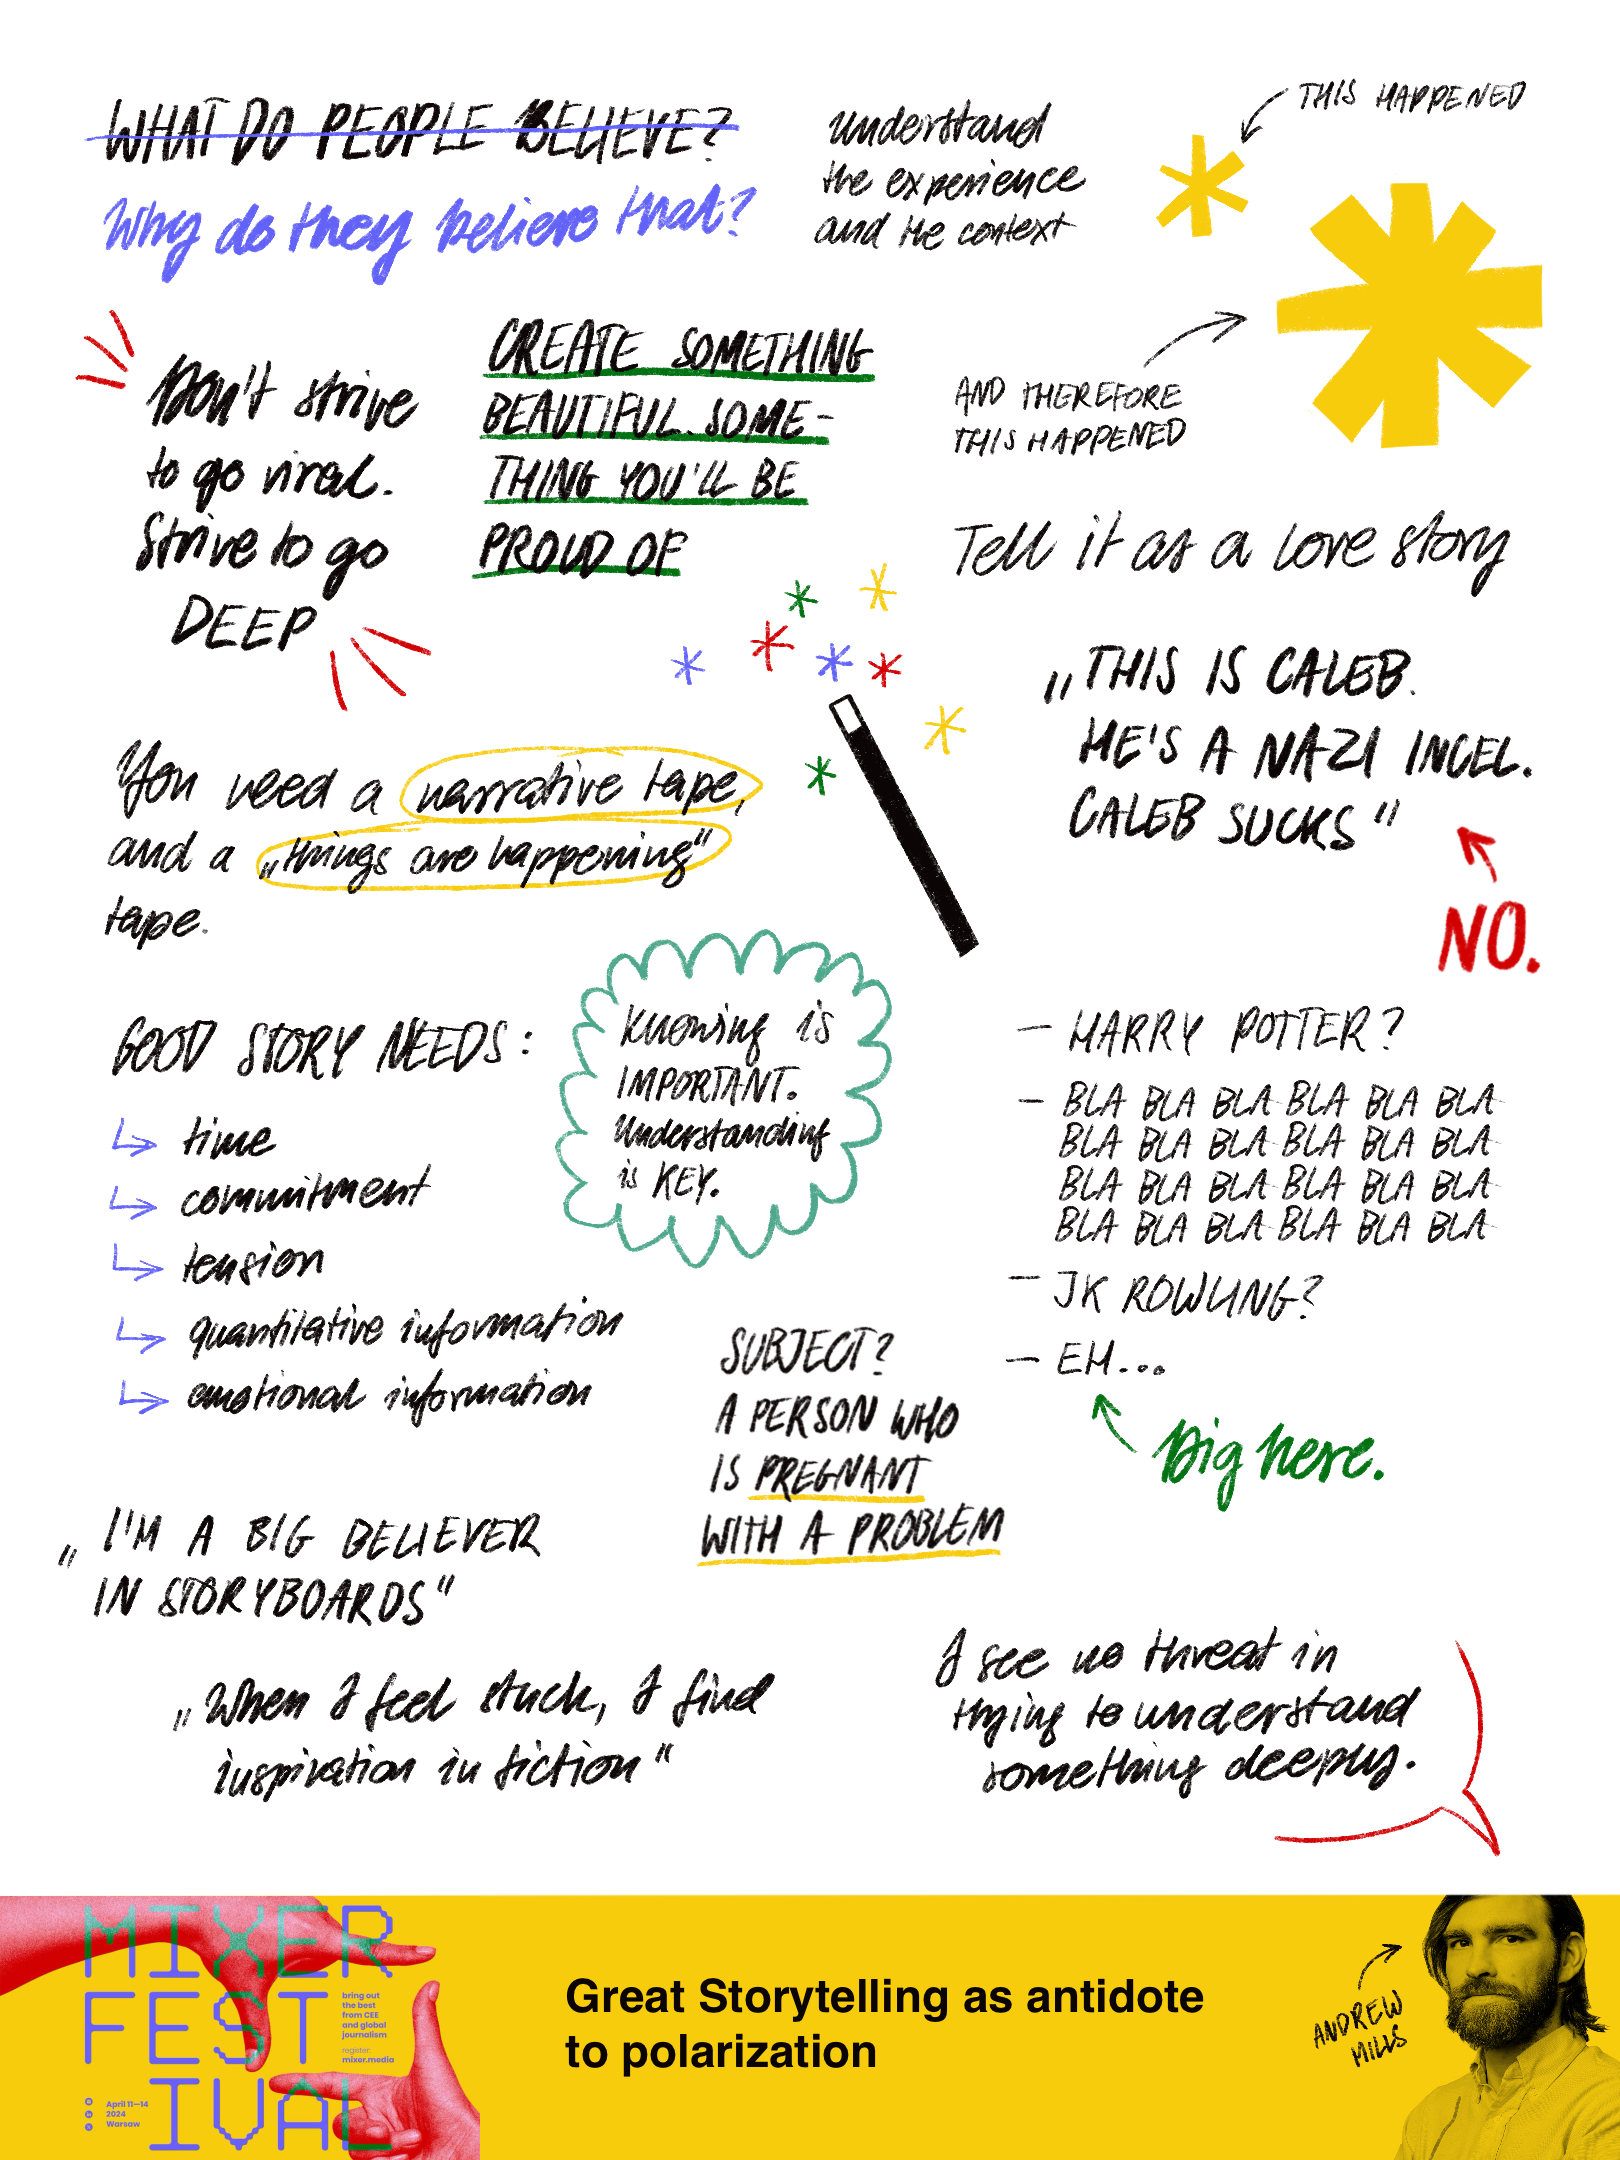 WHAT DO PEOPLE BELIEVE?
Why do they believe that?
understand
the experience
and the context
THIS HAPPENED
AND THEREFORE
THIS HAPPENED
Don't strive
to go viral.
Strive to go
DEEP
CREATE SOMETHING
BEAUTIFUL. SOME-
THING YOU'LL BE
PROUD OF
Tell it as a love story
„THIS IS CALEB.
HE'S A NAZI INCEL.
CALEB SUCKS"
NO.
You need a narrative tape,
and a „things are happening"
tape.
GOOD STORY NEEDS:
time
commitment
tension
quantitative information
emotional information
Knowing is
IMPORTANT.
Understanding
is KEY.
– HARRY POTTER?
– BLA BLA BLA BLA BLA BLA
BLA BLA BLA BLA BLA BLA
BLA BLA BLA BLA BLA BLA
BLA BLA BLA BLA BLA BLA
– JK ROWLING?
– EH...
Dig here.
SUBJECT?
A PERSON WHO
IS PREGNANT
WITH A PROBLEM
„I'M A BIG BELIEVER
IN STORYBOARDS"
„When I feel stuck, I find
inspiration in fiction"
I see no threat in
trying to understand
something deeply.
MIXER
FEST
IVAL
bring out
the best
from CEE
and global
journalism
register:
mixer.media
April 11—14
2024
Warsaw
Great Storytelling as antidote
to polarization
ANDREW
MILLS